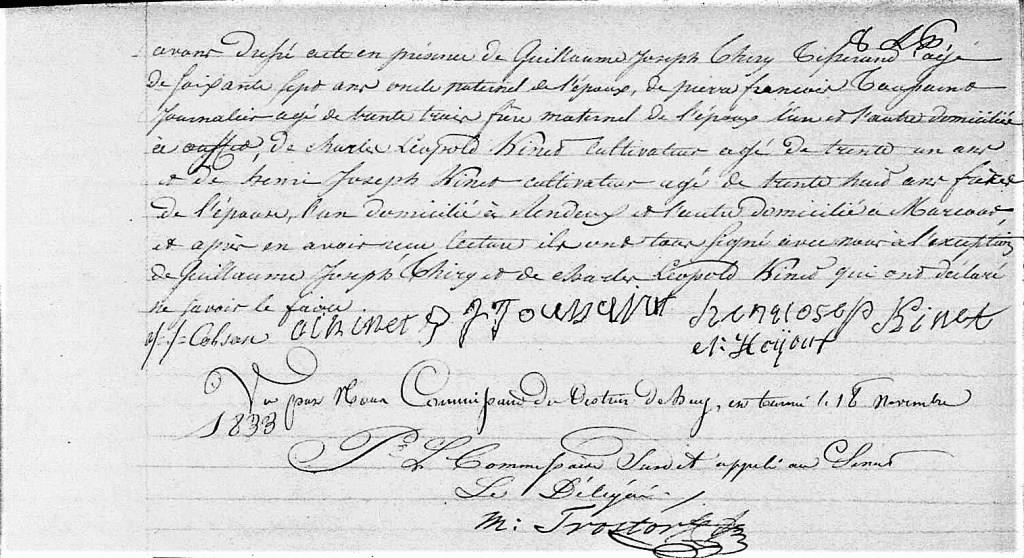 8
avons dressé acte en présence de Guillaume Joseph Thiry Tisserand agé
de soixante sept ans oncle maternel de l'époux, de pierre francois Toussaint
Journalier agé de trente trois frère maternel de l'époux l'un et l'autre domicilié
à ouffet, de Charles Léopold Kinet cultivateur agé de trente un ans
et de henri Joseph Kinet cultivateur agé de trente huit ans frères
de l'épouse, l'un domicilié à Rendeux et l'autre domicilié a Marcour
et après en avoir recu lecture ils ont tous signé avec nous a l'exception
de Guillaume Joseph Thiry et de charles Léopold Kinet qui ont déclaré
ne savoir le faire.
Colson a kinet p f Toussaint henri iosep Kinet
et: Hoÿoux
Vu par Nous Commissaire du District de huy, en terme le 18 novembre
1833
Pr Le Commissaire Susdit appelé au Sénat
Le Délégué
m: